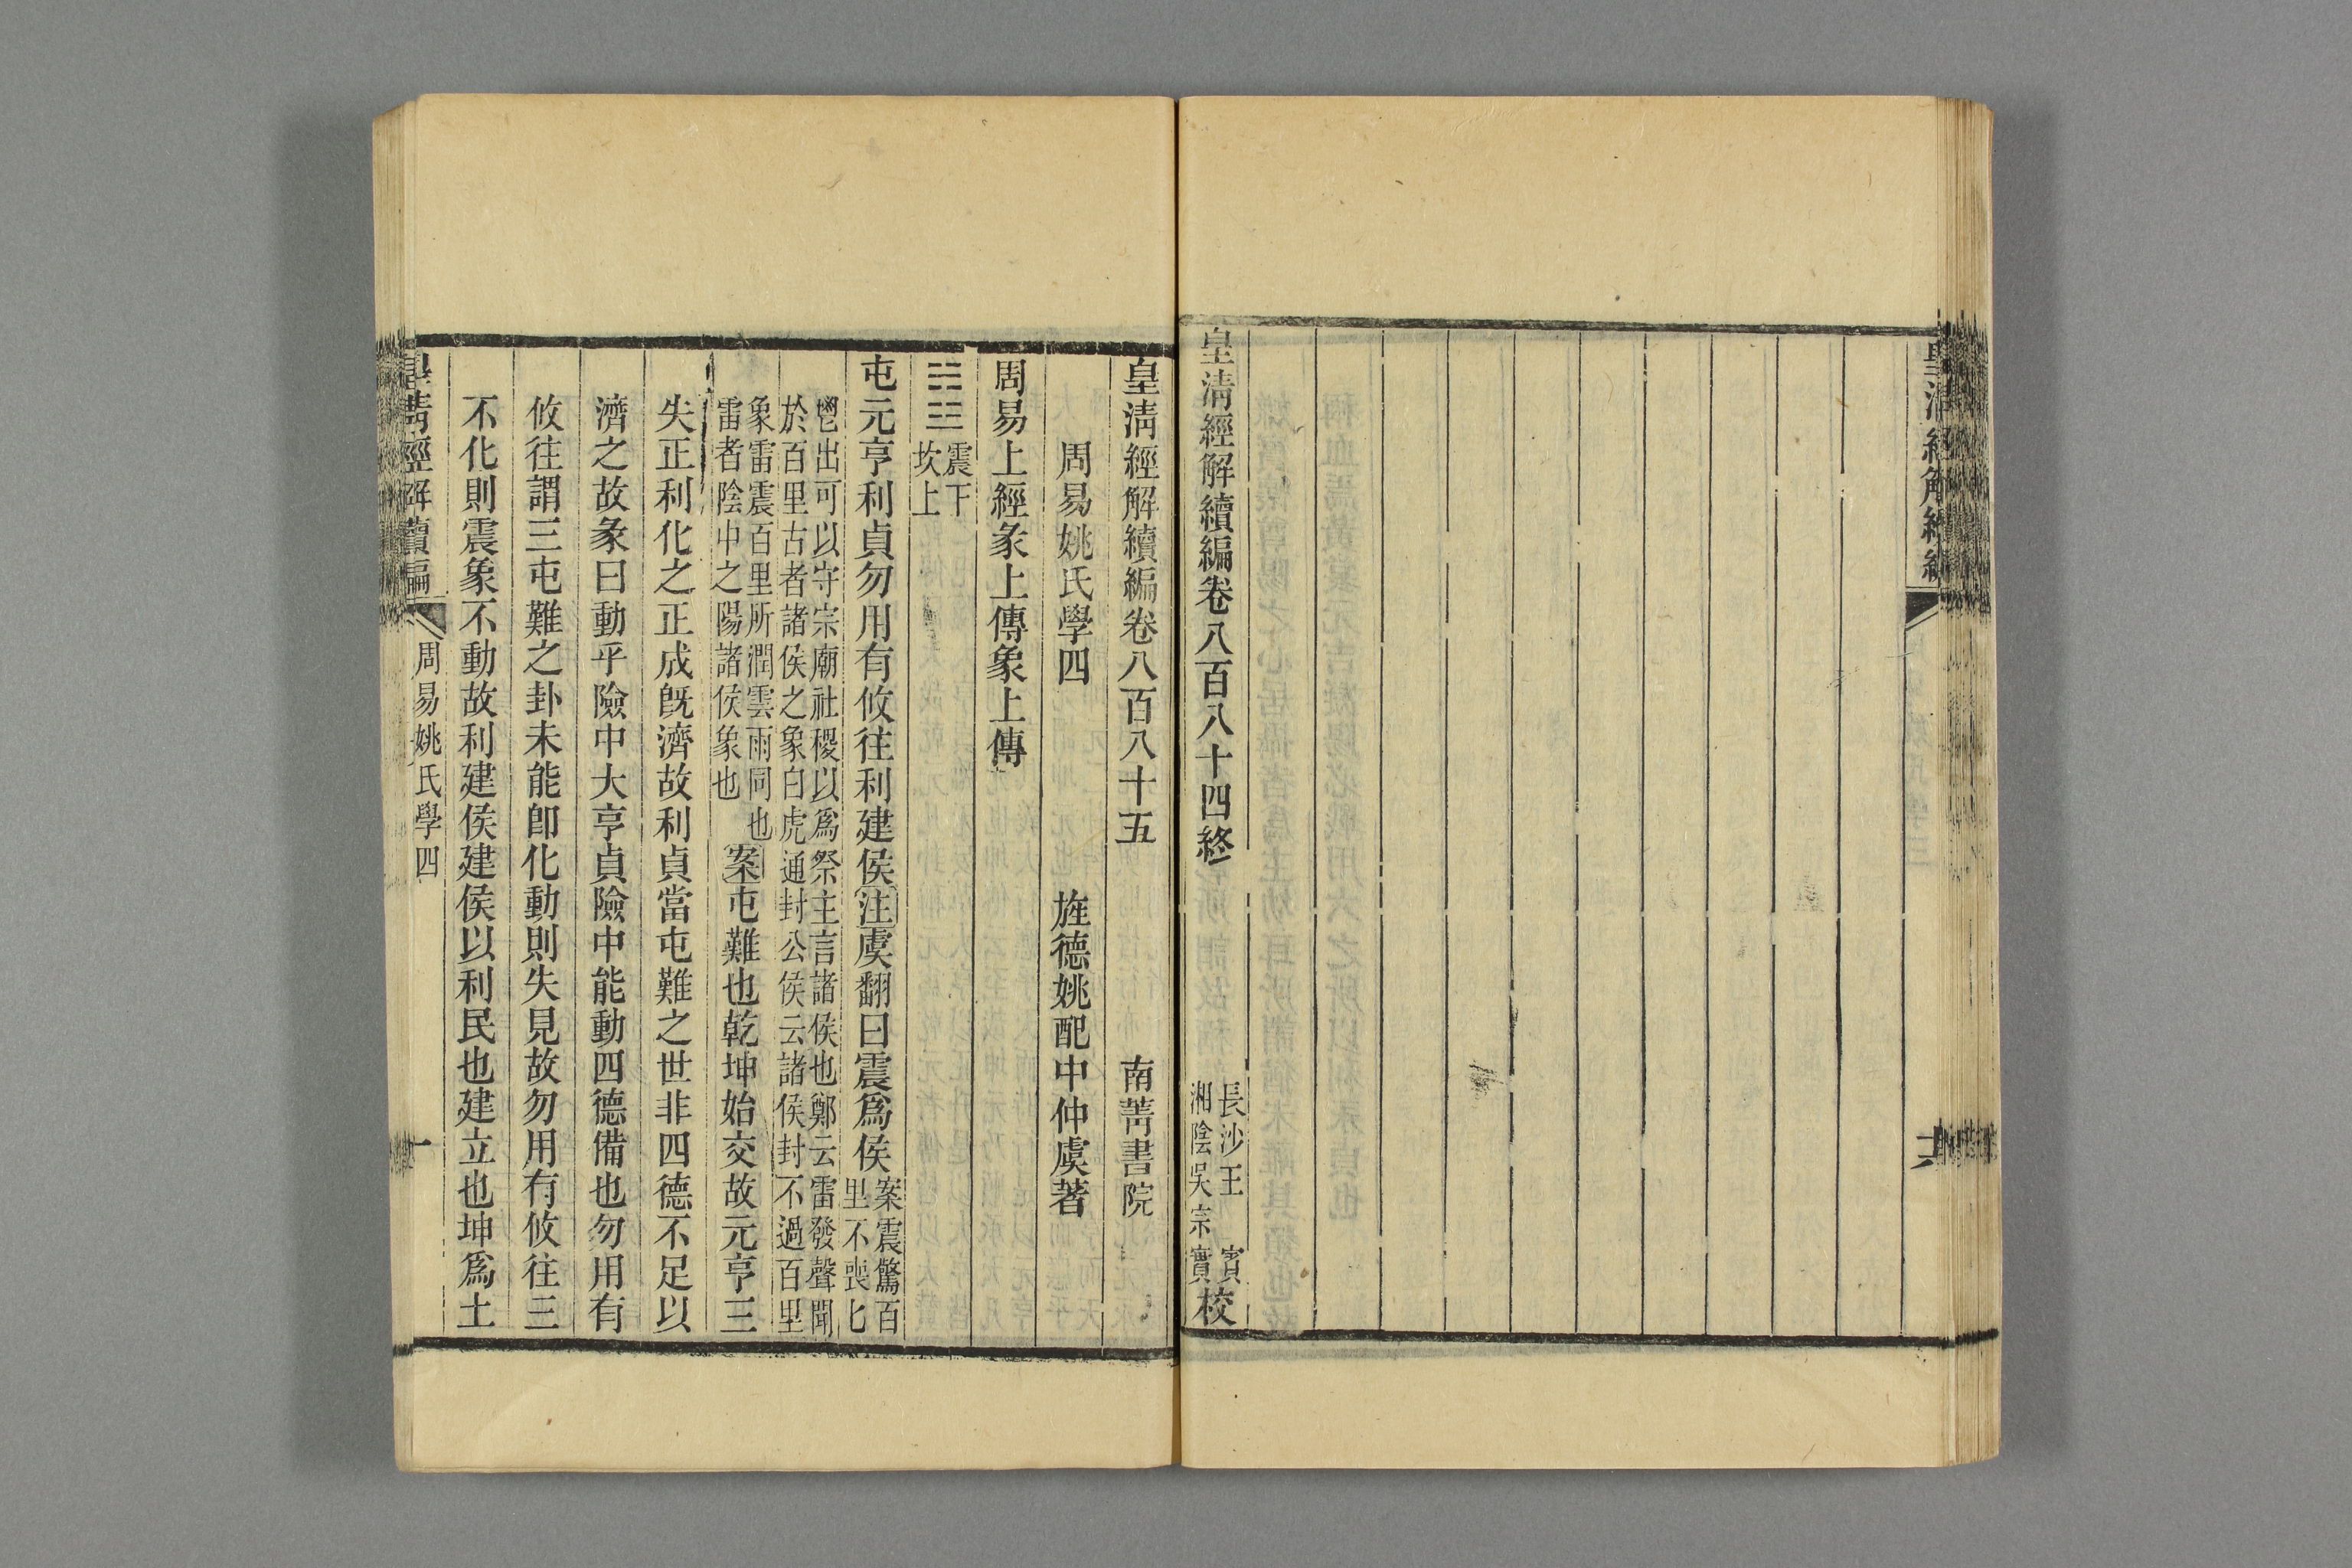 皇清經解續編
六
皇清經解續編卷八百八十四終
長沙王賓
湘陰吳宗實
校
皇清經解續編卷八百八十五
南菁書院
周易姚氏學四
旌德姚配中仲虞著
周易上經彖上傳象上傳
震下
坎上
屯元亨利貞勿用有攸往利建侯注虞翻曰震爲侯
案震驚百
里不喪匕
鬯出可以守宗廟社稷以爲祭主言諸侯也鄭云雷發聲聞
於百里古者諸侯之象白虎通封公侯云諸侯封不過百里
象雷震百里所潤雲雨同也
雷者陰中之陽諸侯象也
案屯難也乾坤始交故元亨三
失正利化之正成既濟故利貞當屯難之世非四德不足以
濟之故彖曰動乎險中大亨貞險中能動四德備也勿用有
攸往謂三屯難之卦未能卽化動則失見故勿用有攸往三
不化則震象不動故利建侯建侯以利民也建立也坤爲土
皇清經解續編
周易姚氏學四
一